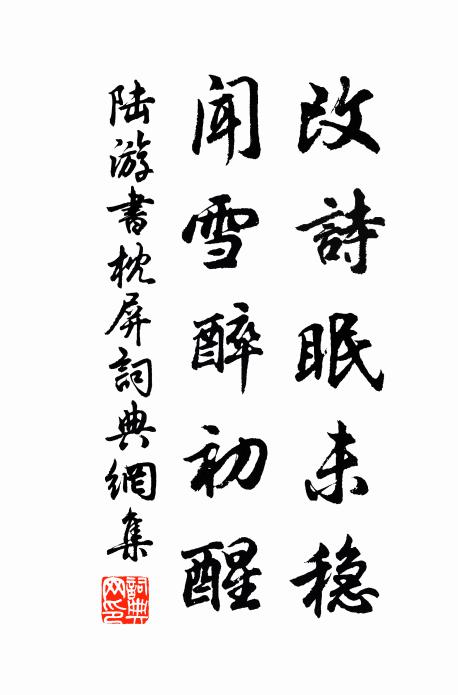 改詩眠未稳
闻雪醉初醒
陆游書枕屏詞典網集
詞典网印